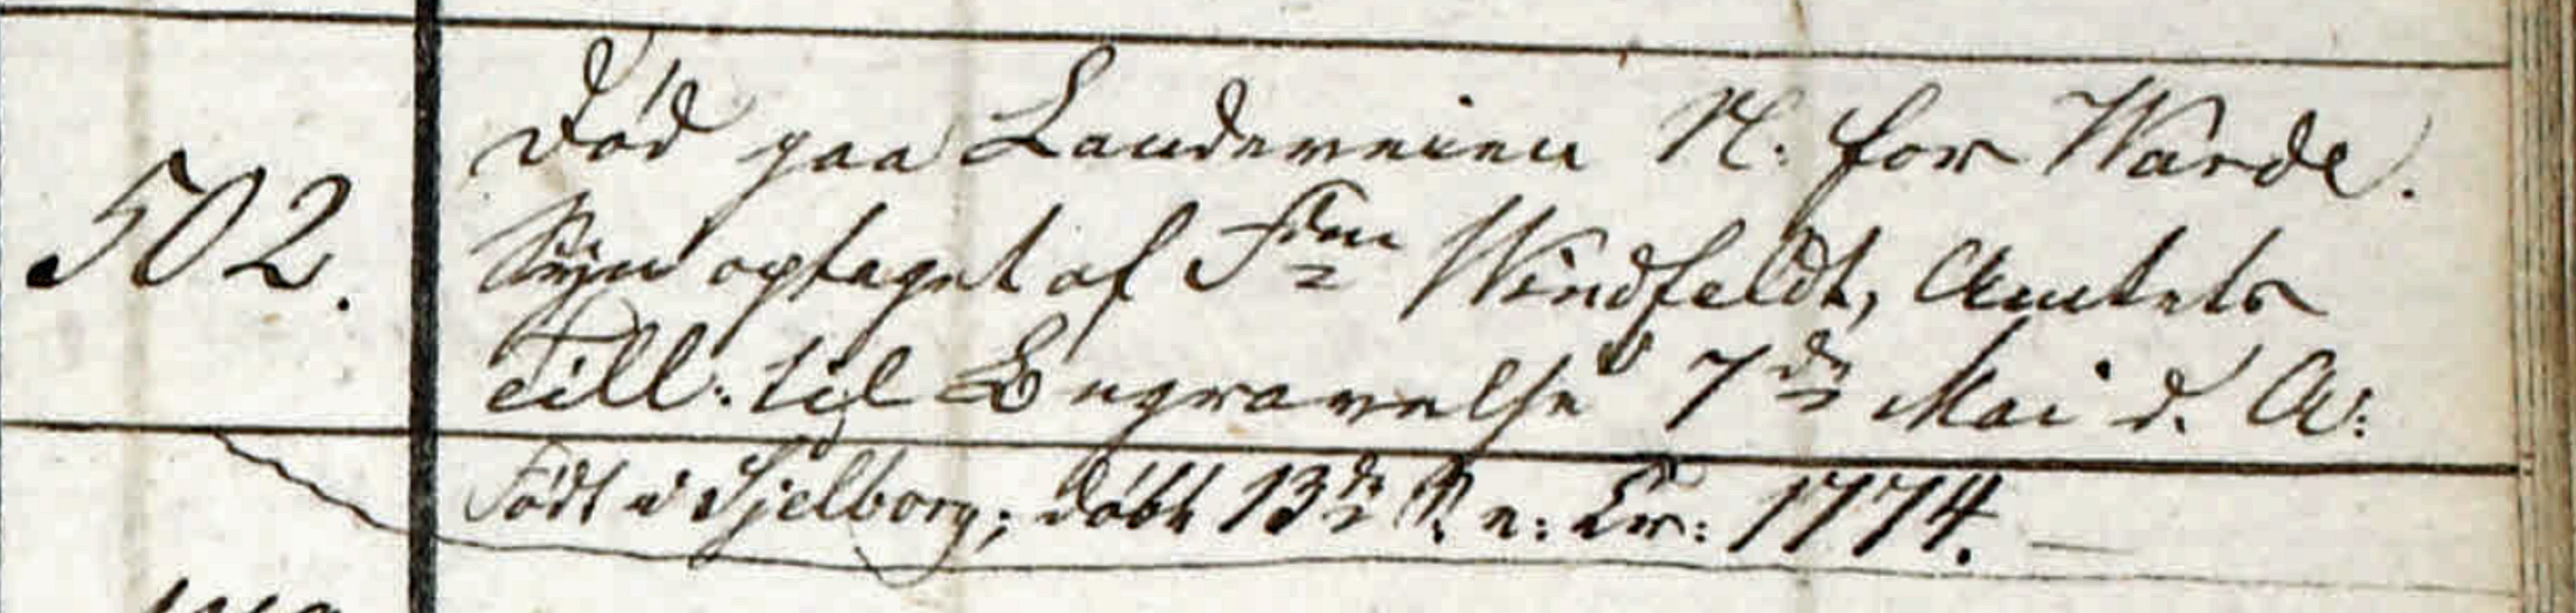 502.
Død paa Landeveien N. for Warde.
Syn optaget af Fm Windfeldt, Amtets
Till: til Begravelse 7de Mai d. A:
Født i Sjelborg; døbt 13de S. e: Tr: 1774.